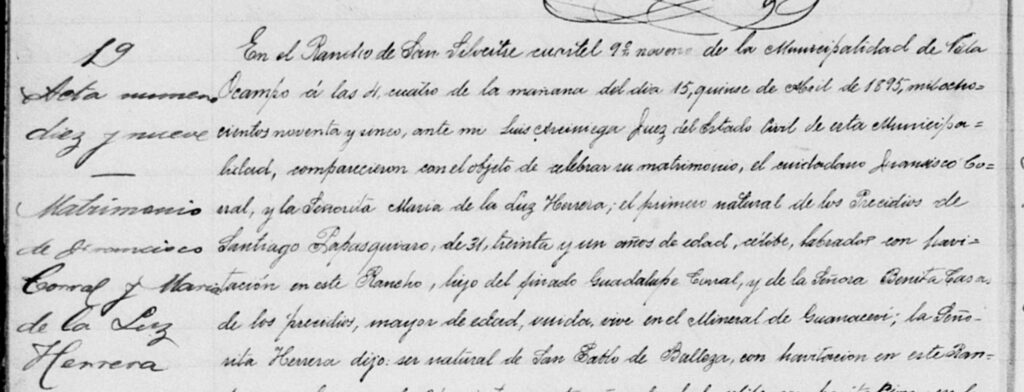 19
Acta numero
diez y nueve
—
Matrimonio
de Francisco
Corral y Maria
de la Luz
Herrera
En el Rancho de San Silvestre cuartel 9º noveno de la Municipalidad de Villa
Ocampo á las 4, cuatro de la mañana del dia 15, quinse de Abril de 1895, mil ocho-
cientos noventa y cinco, ante mi Luis Arciniega Juez del Estado Civil de esta Municipa-
lidad, comparecieron con el objeto de celebrar su matrimonio, el cuidadano Francisco Co-
rral, y la Señorita Maria de la Luz Herrera; el primero natural de los Precidios de
Santiago Papasquiaro, de 31, treinta y un años de edad, célibe, labrador con havi-
tación en este Rancho, hijo del finado Guadalupe Corral, y de la Señora Benita
de los precidios, mayor de edad, viuda, vive en el Mineral de Guanacevi; la Seño-
rita Herrera dijo: ser natural de San Pablo de Balleza, con havitacion en este Ran-